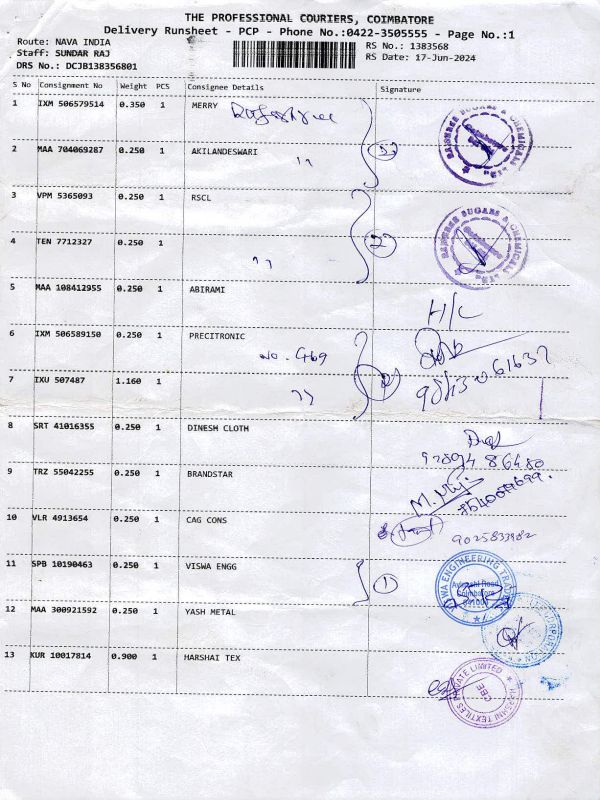 THE PROFESSIONAL COURIERS, COIMBATORE
Delivery Runsheet - PCP - Phone No.:0422-3505555 - Page No.:1
Route: NAVA INDIA
Staff: SUNDAR RAJ
DRS No.: DCJB138356801
RS No.: 1383568
RS Date: 17-Jun-2024
S No Consignment No Weight PCS Consignee Details Signature
1 IXM 506579514 0.350 1 MERRY
2 MAA 704069287 0.250 1 AKILANDESWARI
3 VPM 5365093 0.250 1 RSCL
4 TEN 7712327 0.250 1
5 MAA 108412955 0.250 1 ABIRAMI
H/C
6 IXM 506589150 0.250 1 PRECITRONIC
No. 469
7 IXU 507487 1.160 1
8 SRT 41016355 0.250 1 DINESH CLOTH
9 TRZ 55042255 0.250 1 BRANDSTAR
10 VLR 4913654 0.250 1 CAG CONS
9025833982
11 SPB 10190463 0.250 1 VISWA ENGG
1
12 MAA 300921592 0.250 1 YASH METAL
13 KUR 10017814 0.900 1 HARSHAI TEX
RAJSHREE SUGARS & CHEMICALS LTD
Coimbatore
RAJSHREE SUGARS & CHEMICALS LTD
Coimbatore
Avinashi Road
Coimbatore
HARSHNI TEXTILES PRIVATE LIMITED
CBE